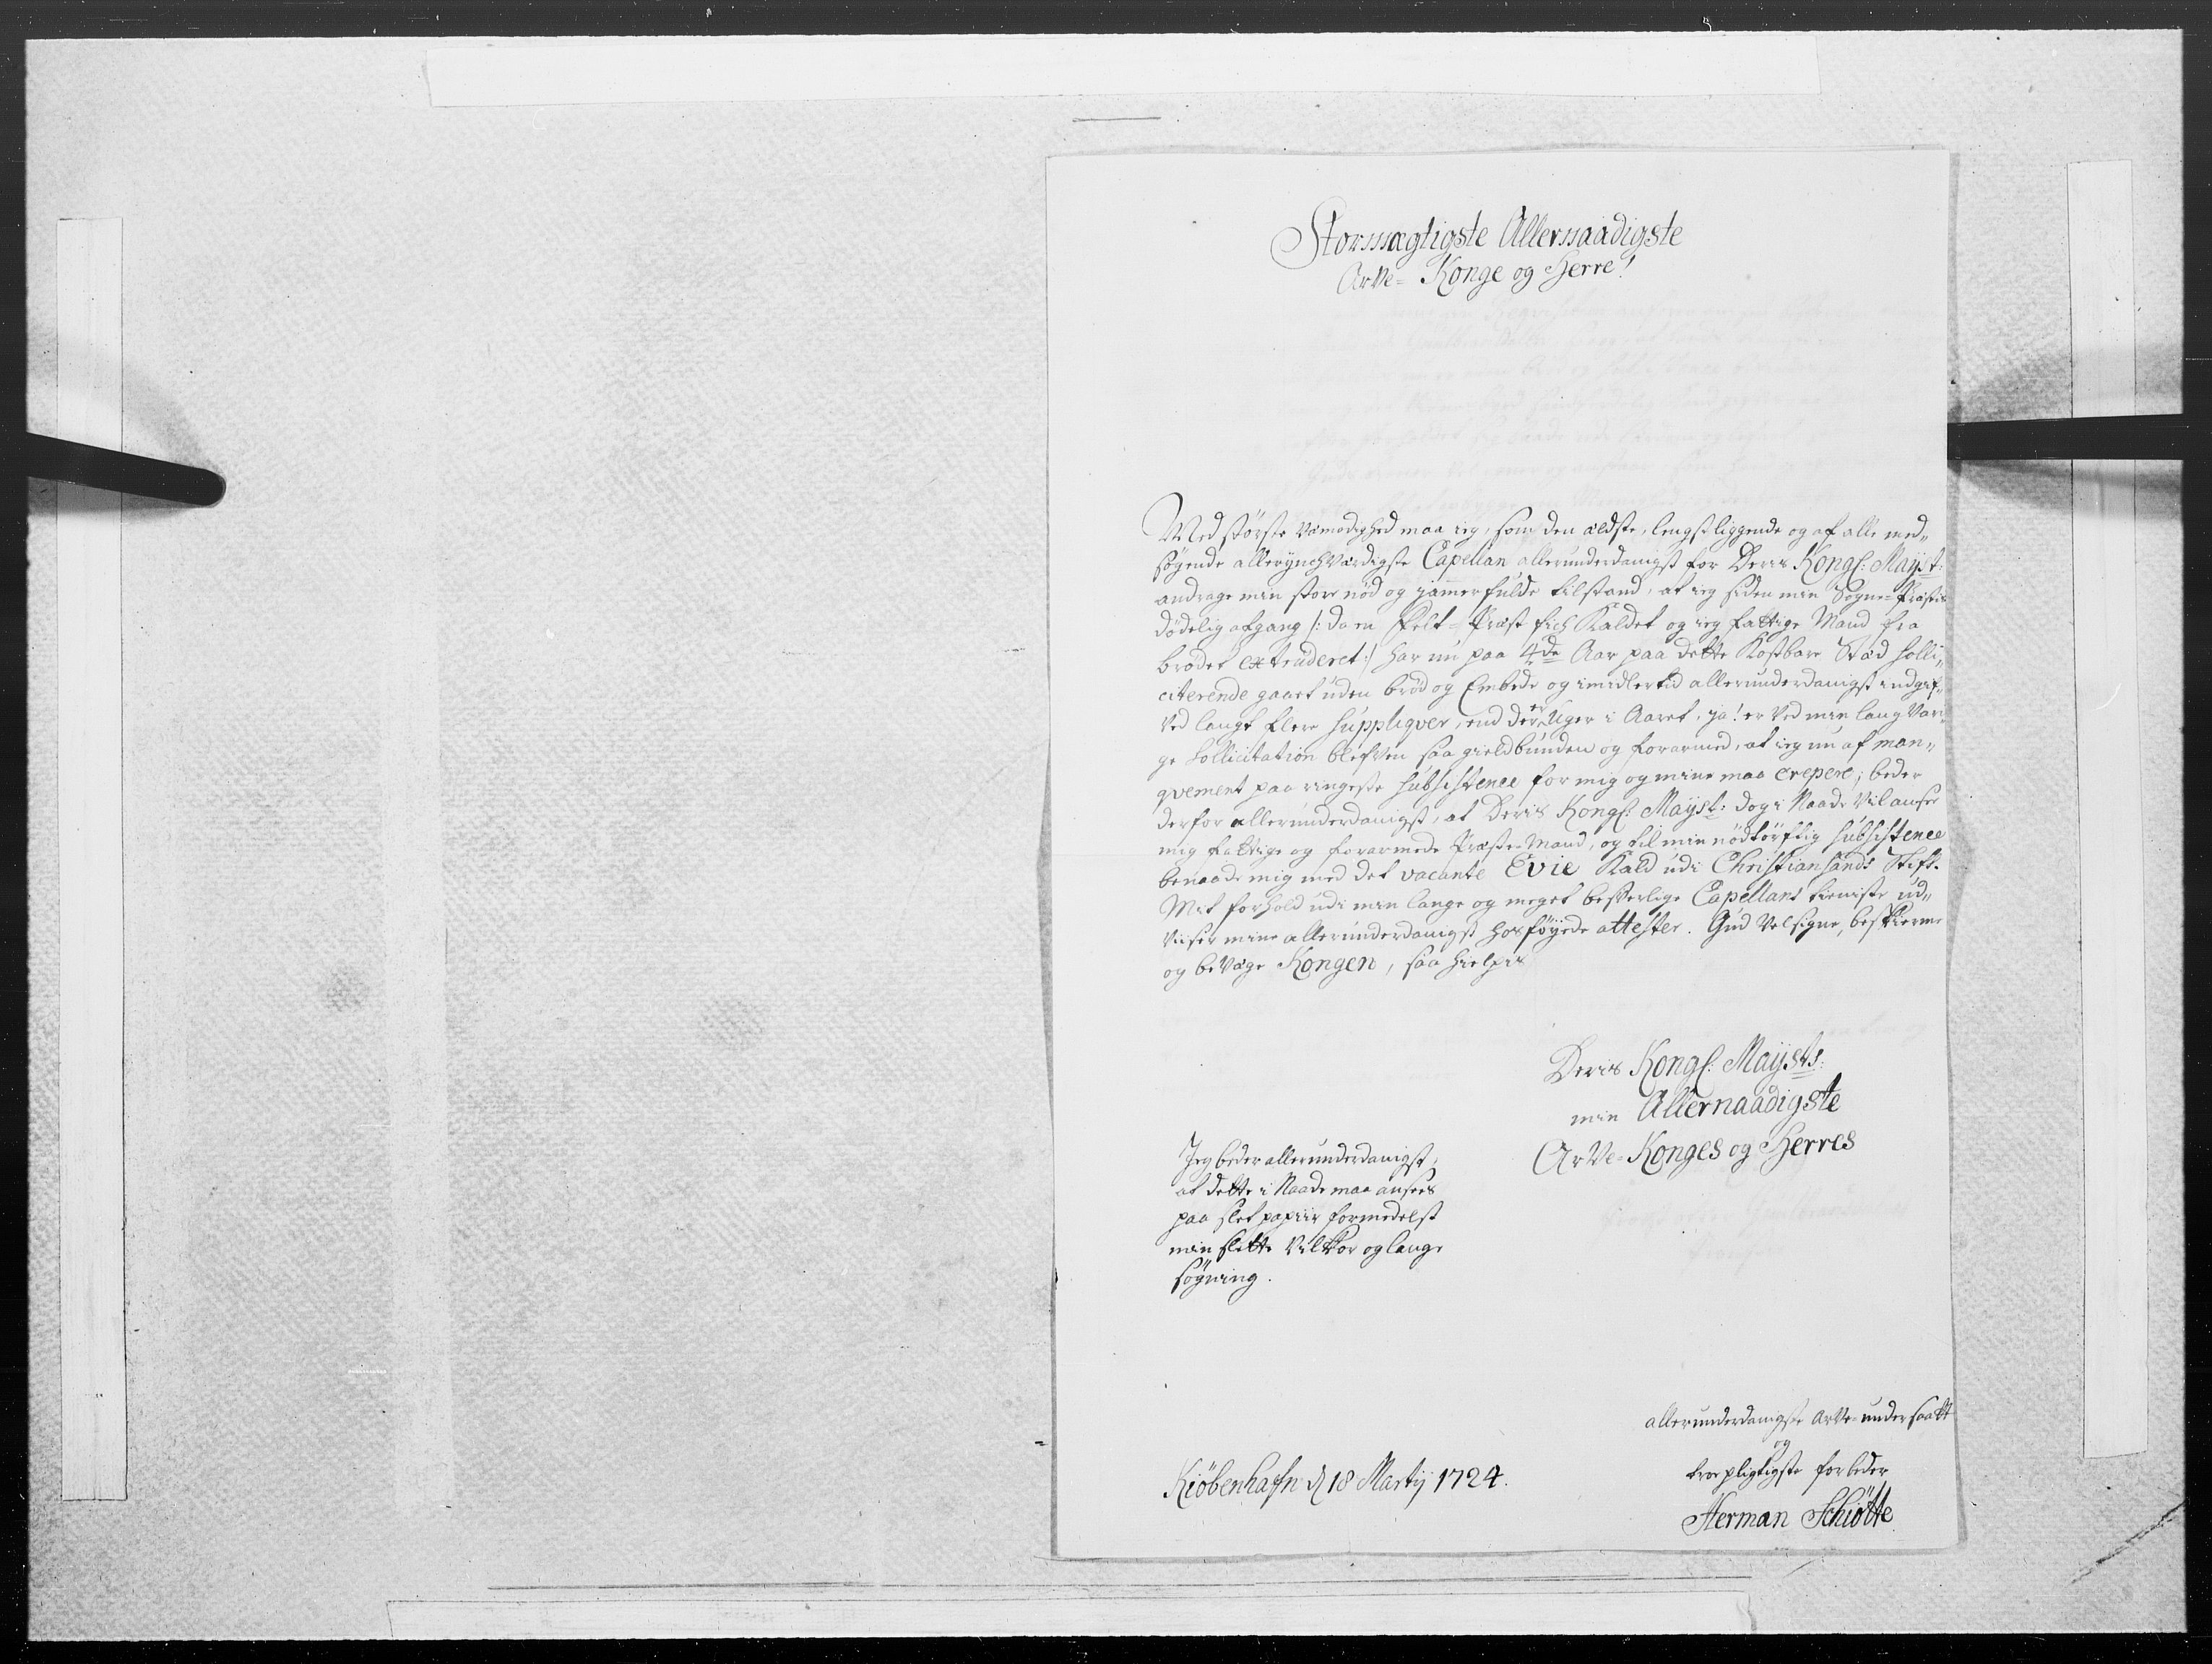 Stormægtigste Allernaadigste
Arve= Konge og Herre!
Med største Vemodighed maa ieg, som den ældste, lengst liggende og af alle med„
søgende allerynchværdigste Capellan allerunderdanigst for Deris Kongl: Mayst:
andrage min store nød og jammerfulde tilstand, at ieg siden min Sogne=Præstes
dødelig afgang /: da en Felt=Præst fich Kaldet og ieg fattige Mand fra
brødet extruderet :/ har nu paa 4de Aar paa dette Kostbare Stæd solli„
citerende gaaet uden brød og Embede og imidlertid allerunderdanigst indgif„
ved langt flere suppliqver, end der er Uger i Aaret, ja! er ved min lang Vari„
ge Sollicitation blefven saa gieldbunden og forarmed, at ieg nu af man„
qvement paa ringeste subsistence for mig og mine maa crepere; beder
derfor allerunderdanigst, at Deris Kongl: Mayst: dog i Naade Vil ansee
mig fattige og forarmede Præste-Mand, og til min nødtørftig subsistence
benaade mig med det vacante Evie Kald udi Christiansands Stift.
Mit forhold udi min lange og meget besværlige Capellans tieniste ud„
viiser mine allerunderdanigst hosføyede attester. Gud Velsigne, beskierme
og bevare Kongen, saa hielpis
Deris Kongl: Maysts:
min Allernaadigste
Arve=Konges og Herres
Jeg beder allerunderdanigst,
at dette i Naade maa ansees
paa slet papiir formedelst
min slette Vilkor og lange
søgning.
allerunderdanigste Arve=undersaatt
og
troepligtigste forbeder
Kiøbenhafn d 18 Martij 1724.
Herman Schiøtte